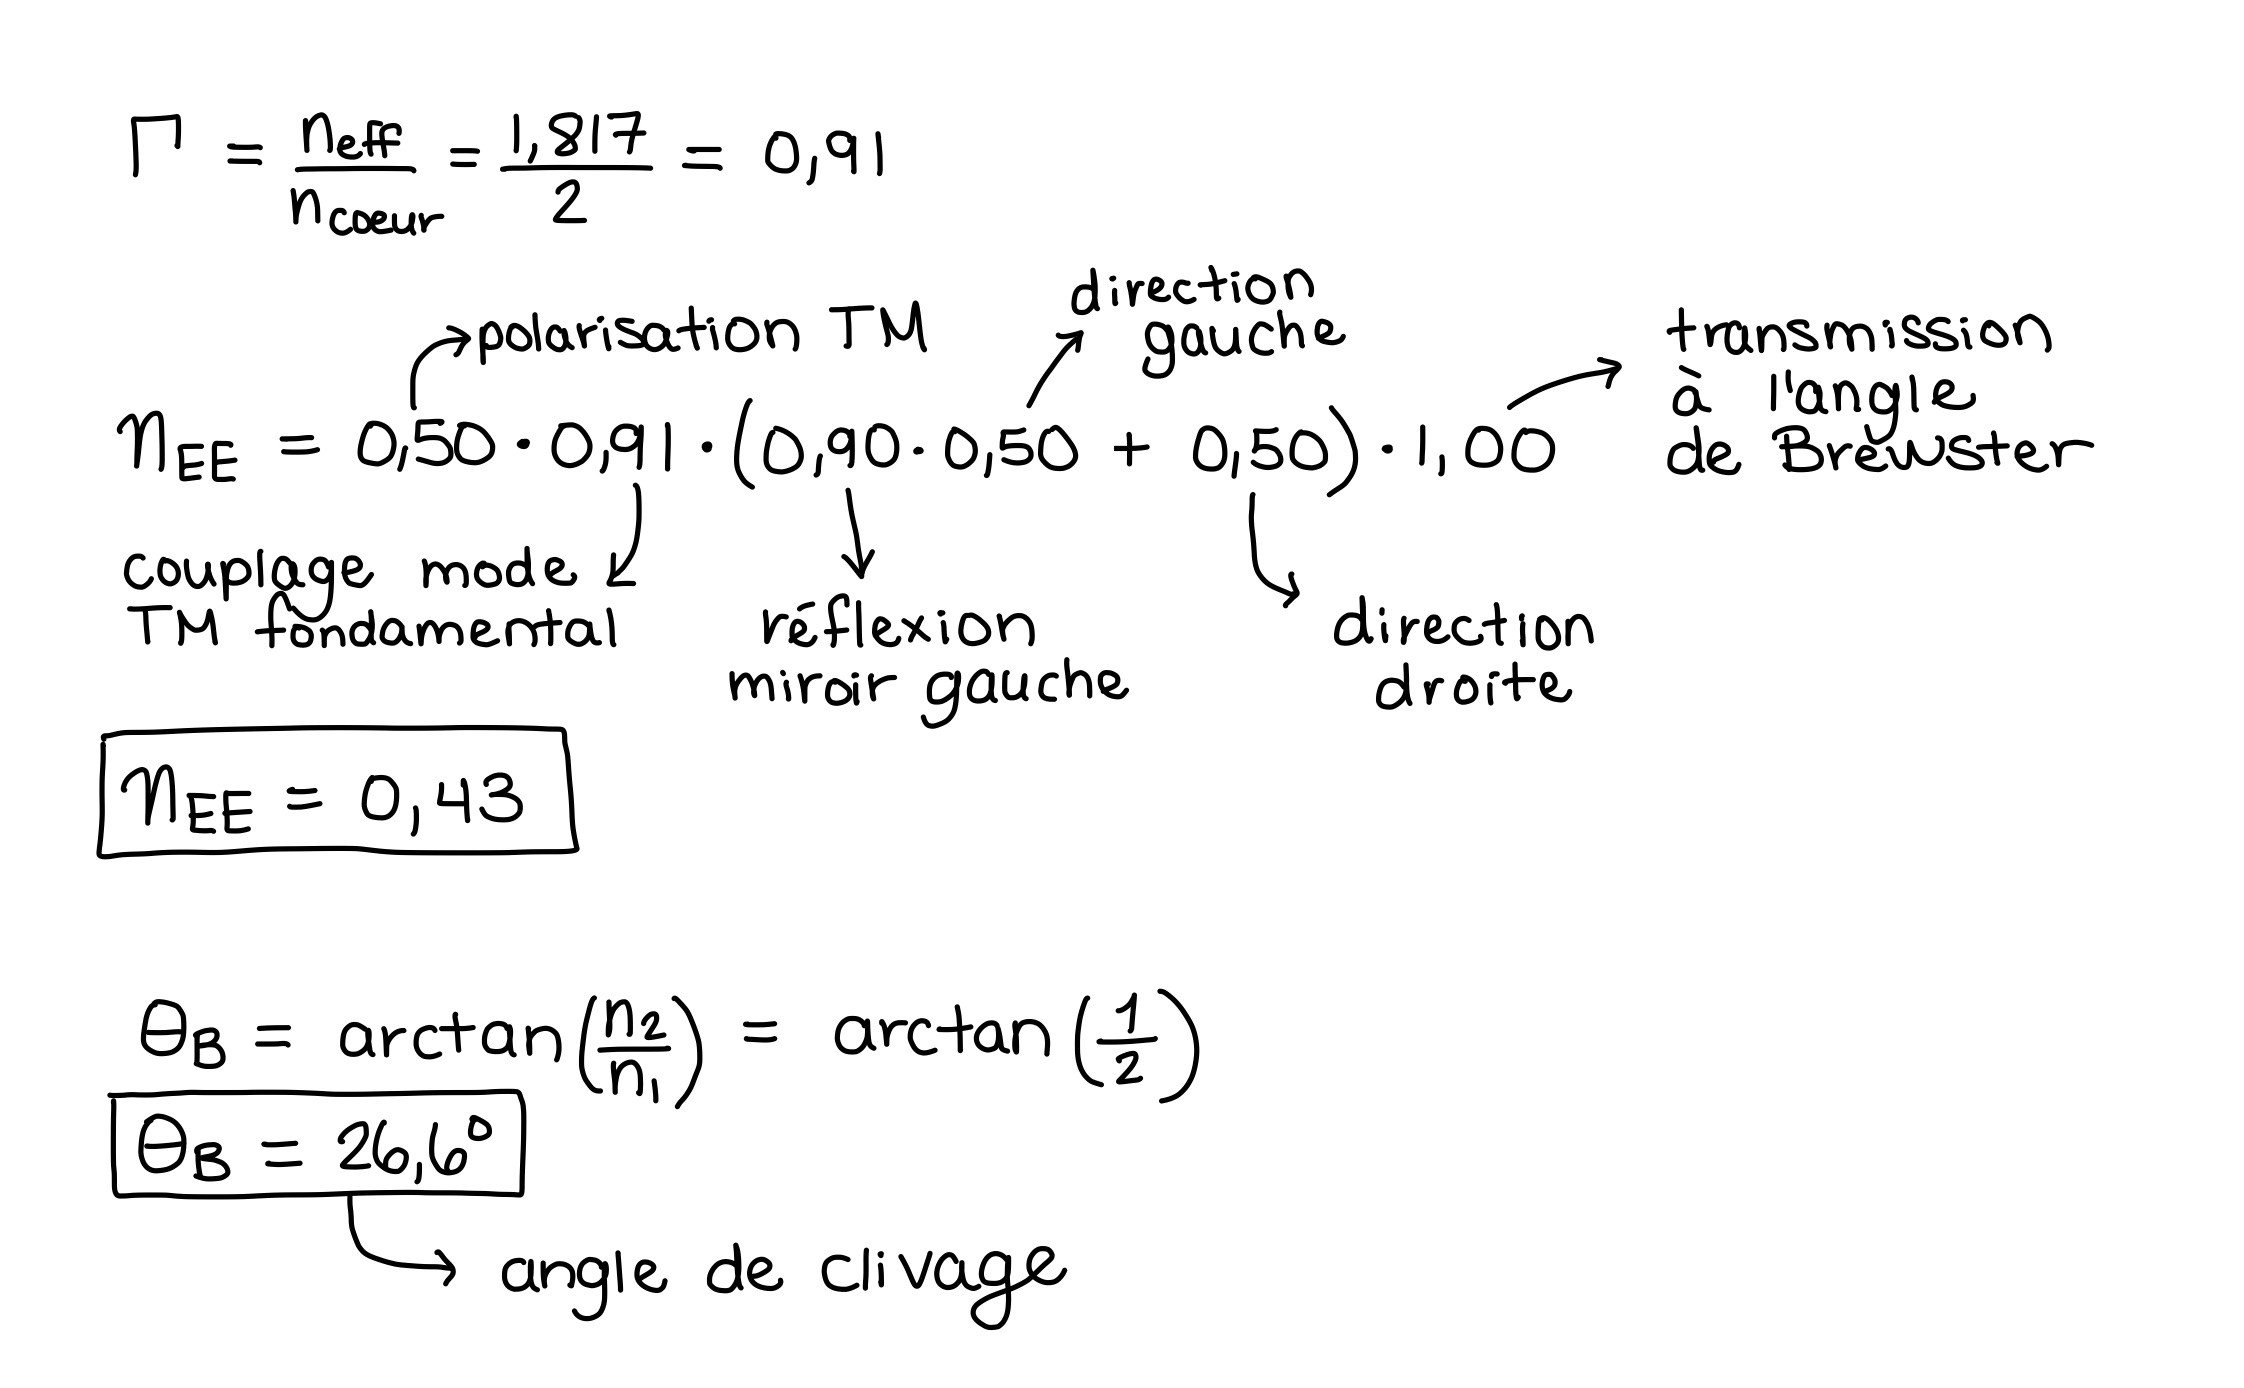 Γ = n_eff / n_coeur = 1,817 / 2 = 0,91
direction
gauche
polarisation TM
transmission
à l'angle
de Brewster
η_EE = 0,50 · 0,91 · (0,90 · 0,50 + 0,50) · 1,00
couplage mode
TM fondamental
réflexion
miroir gauche
direction
droite
η_EE = 0,43
θ_B = arctan(n_2 / n_1) = arctan(1 / 2)
θ_B = 26,6°
angle de clivage